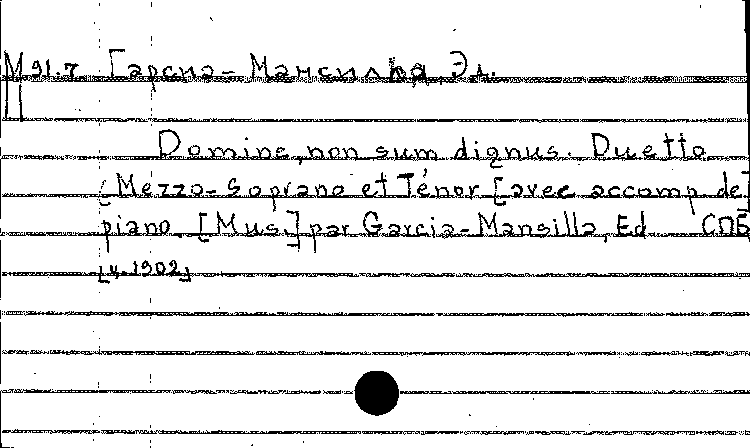 М 91.7 Гарсиа-Мансилья, Эд.
Domine, non sum dignus. Duetto
(Mezzo-Soprano et Ténor [avec accomp. de]
piano. [Mus.] par Garcia-Mansilla, Ed СПБ
[ц. 1902]